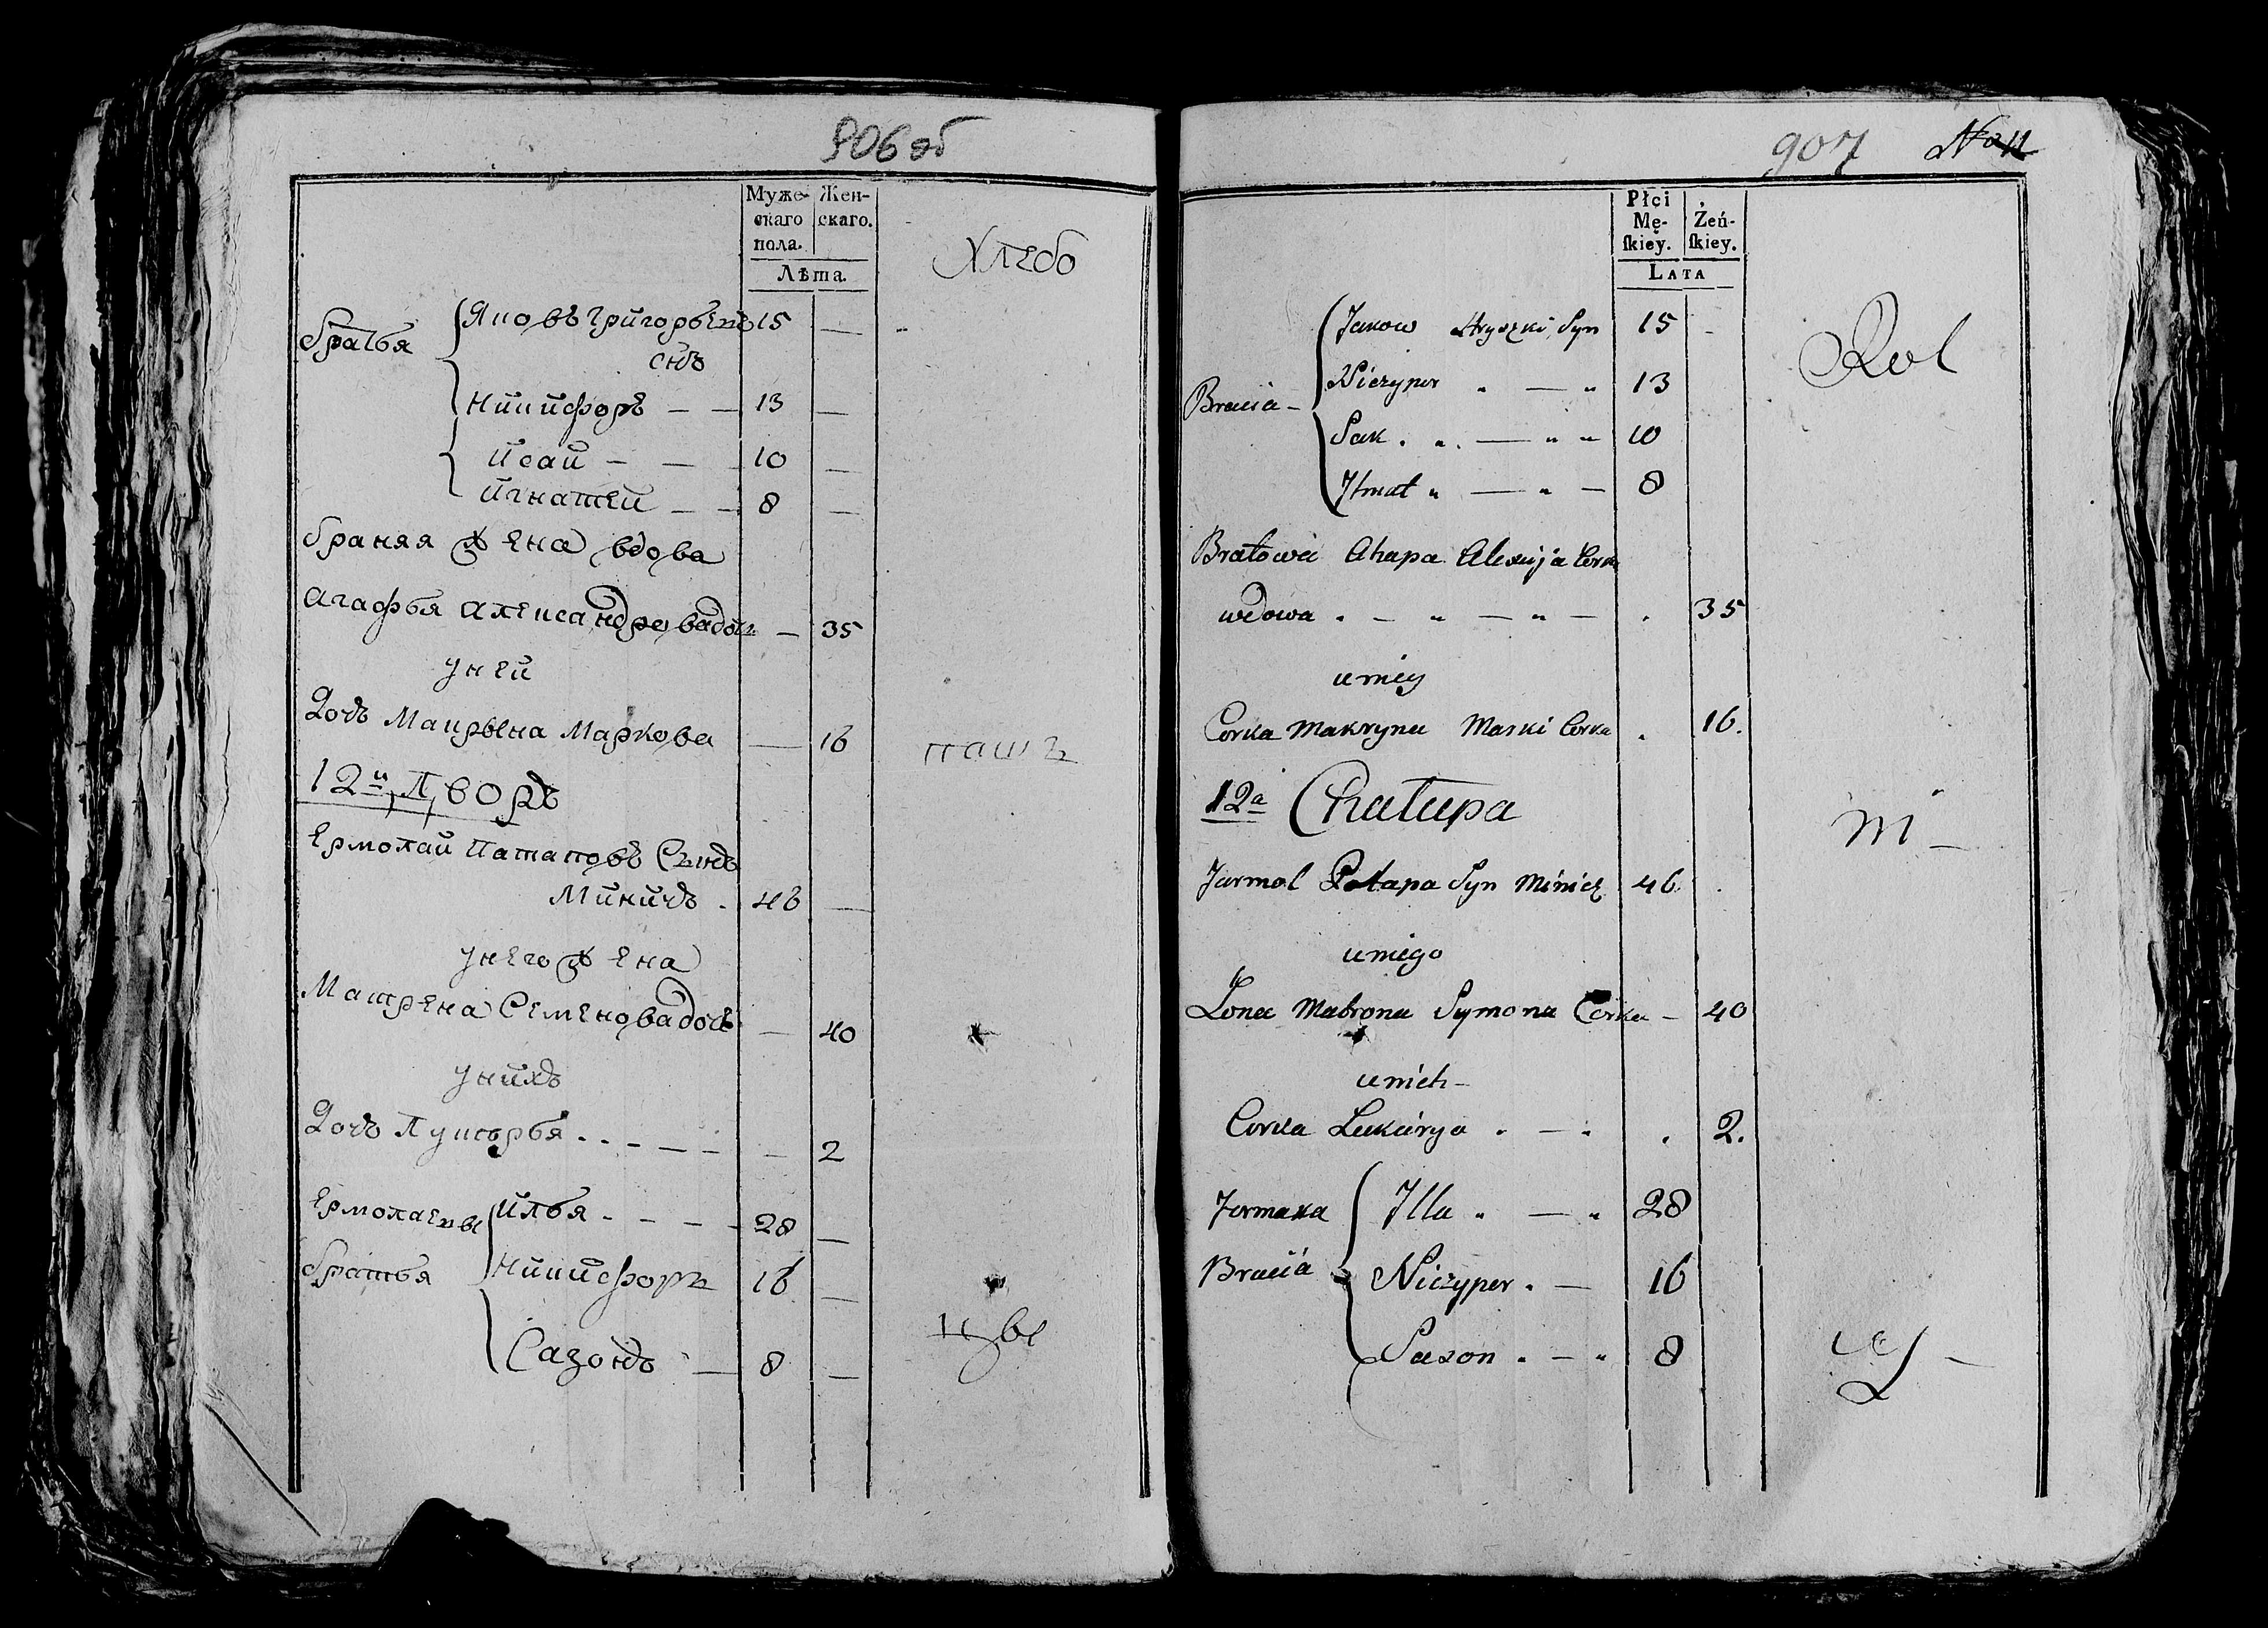 906 об
Муже-
скаго
пола.
Жен-
скаго.
Лѣта.
Хлебо
братья
Яковъ Григорьевъ 15 —
снъ
Никифоръ — — 13 —
Исай — — 10 —
Игнатей — — 8 —
браняя жена вдова
Агафья Александровадочь — 35
У ней
Дочь Маирвена Маркова — 16
пашъ
12й Дворъ
Ермолай Патаповъ Сынъ
Миничъ . 46 —
Унего жена
Матрена Семеновадочь — 40
Унихъ
Дочь Лукерья . . . — — — — 2
Ермолаевы
братья
Илья . — — — 28 —
Никифоръ 16 —
Сазонъ — 8 —
цвы
907 No 11
Płci
Mę-
ſkiey.
Żeń-
ſkiey.
LATA
Rol
Bracia —
Jakow Hryszki Syn 15 -
Niczyper " — " 13
Sak . " . — " " 10
Ihnat " — " — 8
Bratowa Ahapa Alexija Corka
wdowa . — " — " — . 35
u niey
Corka Makryna Marki Corka . 16.
12a Chałupa
ni —
Jarmol Potapa Syn Minicz 46. .
u niego
Żona Matrona Symona Corka — 40
u nich —
Corka Lukirya . — . . 2.
Jarmaka
Bracia
Illa " — " 28
Niczyper . — 16
Sazon . — " 8
cy —